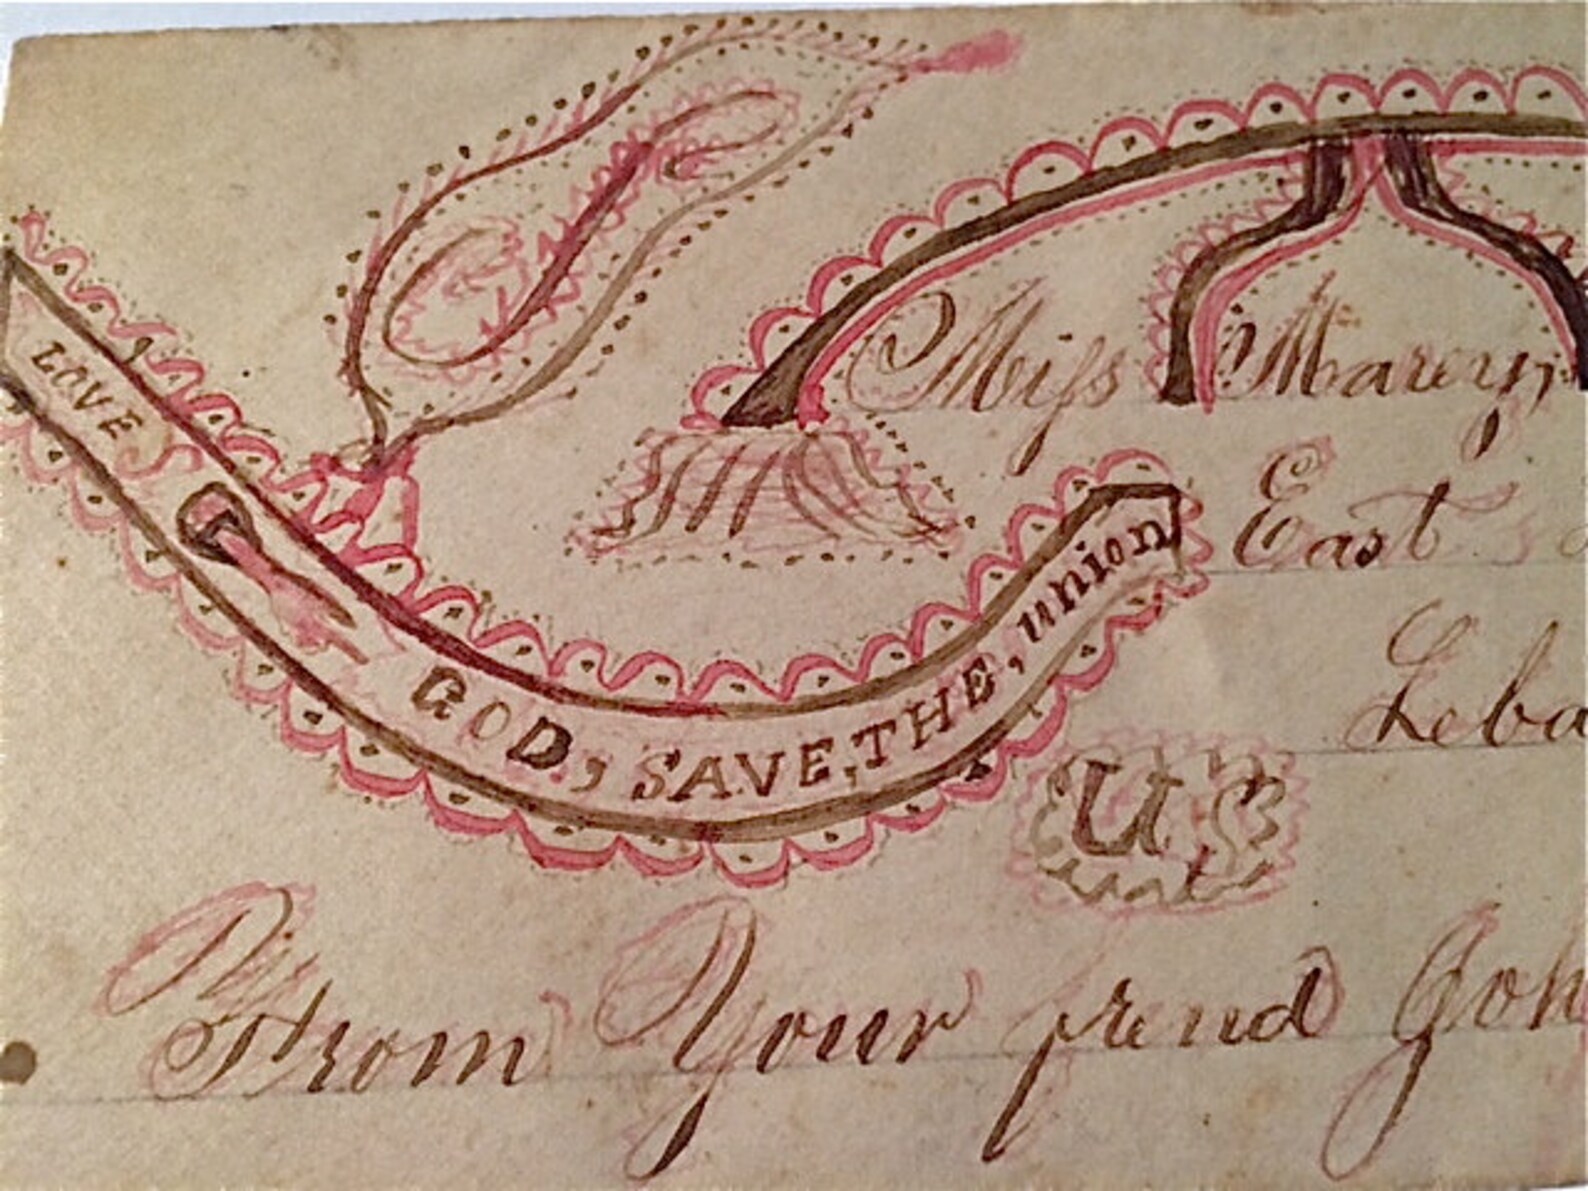 Miss Marey,
East
Leba
LOVE
GOD, SAVE, THE, union
U S
From Your frend Joh